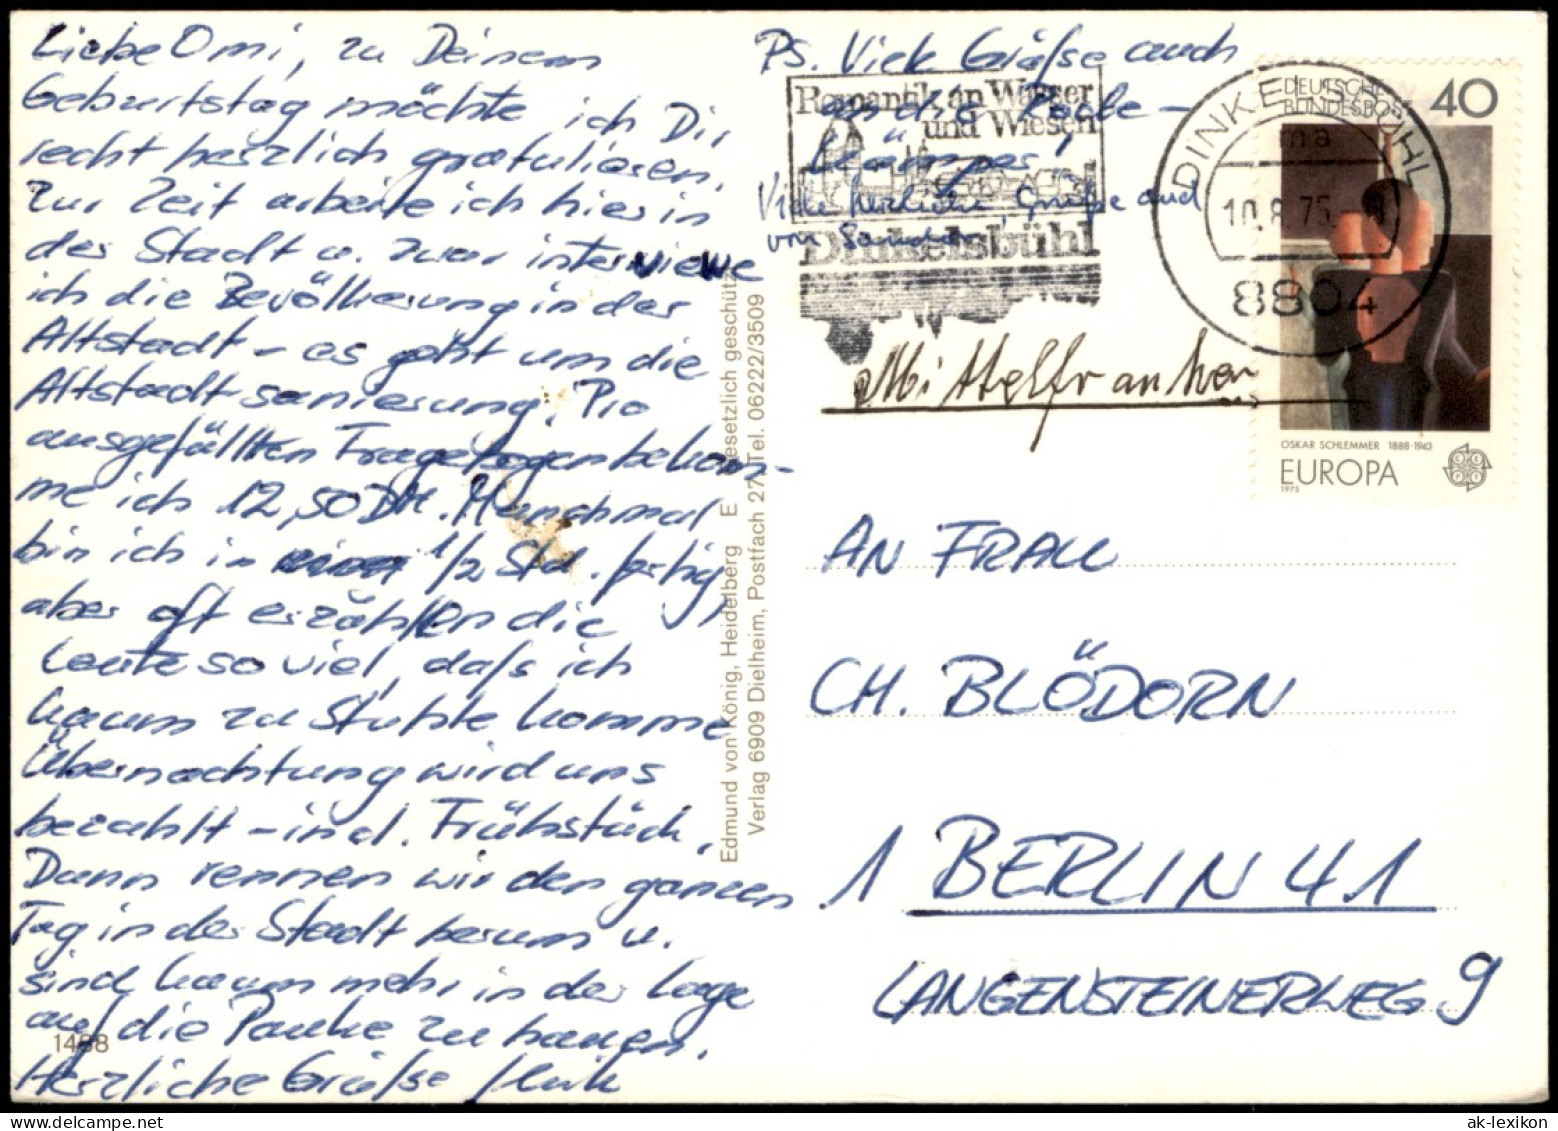 Liebe Omi, zu Deinem
Geburtstag möchte ich Dir
recht herzlich gratulieren.
Zur Zeit arbeite ich hier in
der Stadt u. zwar interviewe
ich die Bevölkerung in der
Altstadt – es geht um die
Altstadtsanierung. Pro
ausgefüllten Fragebogen bekom-
me ich 12,50 DM. Manchmal
bin ich in 1/2 Std. fertig,
aber oft erzählen die
Leute so viel, daß ich
kaum zu Stuhle komme
Übernachtung wird uns
bezahlt – incl. Frühstück.
Dann rennen wir den ganzen
Tag in der Stadt herum u.
sind kaum mehr in der Lage
auf die Pauke zu hauen.
Herzliche Grüße
1488
Edmund von König, Heidelberg E Gesetzlich geschützt
Verlag 6909 Dielheim, Postfach 27, Tel. 06222/3509
PS. Viele Grüße auch
an die
Viele herzliche Grüße auch
von
Romantik an Wasser
und Wiesen
Dinkelsbühl
DINKELSBÜHL
ma
10.8.75
8804
DEUTSCHE
BUNDESPOST
40
OSKAR SCHLEMMER 1888-1943
EUROPA
1975
Mittelfranken
AN FRAU
CH. BLÖDORN
1 BERLIN 41
LANGENSTEINERWEG 9
ak-lexikon.com